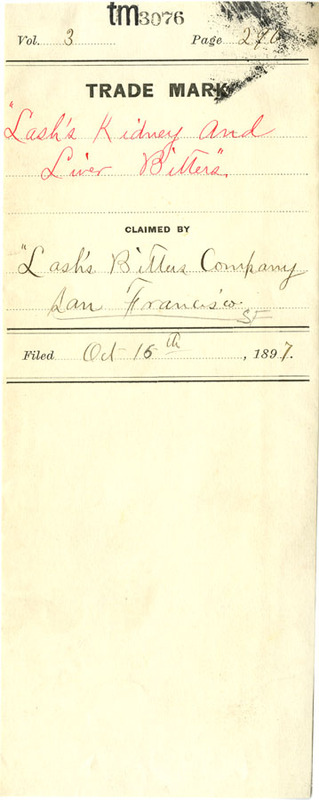 tm3076
Vol. 3 Page
TRADE MARK
"Lash's Kidney and
Liver Bitters".
CLAIMED BY
"Lash's Bitters Company
San Francisco.
SF
Filed Oct 15th, 1897.